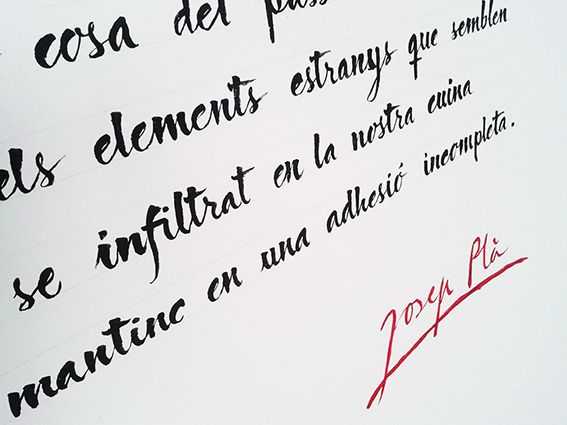 cosa del pass
els elements estranys que semblen
se infiltrat en la nostra cuina
mantinc en una adhesió incompleta.
Josep Plà